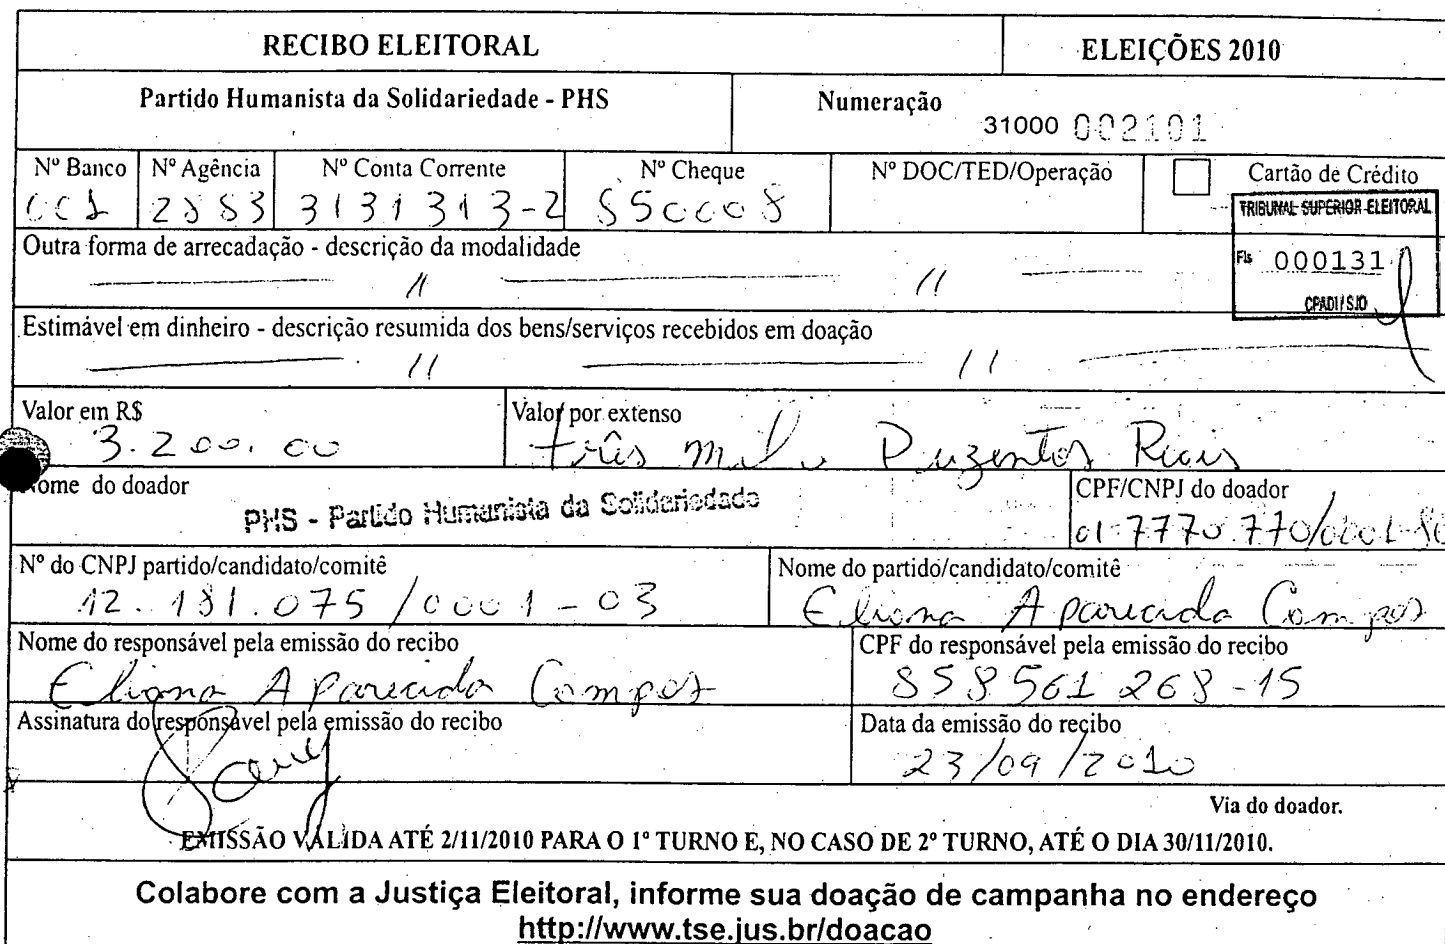 RECIBO ELEITORAL ELEIÇÕES 2010
Partido Humanista da Solidariedade - PHS Numeração
31000 002101
Nº Banco Nº Agência Nº Conta Corrente Nº Cheque Nº DOC/TED/Operação Cartão de Crédito
001 2883 3131313-2 850008
TRIBUNAL SUPERIOR ELEITORAL
Fls 000131
CPADI/SJD
Outra forma de arrecadação - descrição da modalidade
// //
Estimável em dinheiro - descrição resumida dos bens/serviços recebidos em doação
// //
Valor em R$ Valor por extenso
3.200,00 três mil Duzentos Reais
Nome do doador CPF/CNPJ do doador
PHS - Partido Humanista da Solidariedade
Nº do CNPJ partido/candidato/comitê Nome do partido/candidato/comitê
12.181.075/0001-03 Eliana Aparecida Campos
Nome do responsável pela emissão do recibo CPF do responsável pela emissão do recibo
Eliana Aparecida Campos 858561268-15
Assinatura do responsável pela emissão do recibo Data da emissão do recibo
23/09/2010
Via do doador.
EMISSÃO VÁLIDA ATÉ 2/11/2010 PARA O 1º TURNO E, NO CASO DE 2º TURNO, ATÉ O DIA 30/11/2010.
Colabore com a Justiça Eleitoral, informe sua doação de campanha no endereço
http://www.tse.jus.br/doacao